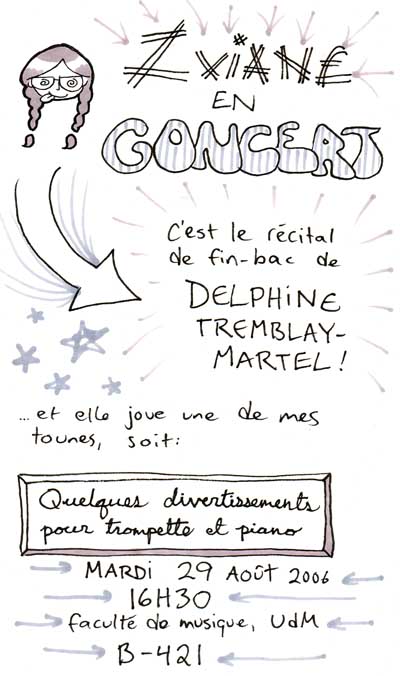 ZVIANE
EN
CONCERT
C'est le récital
de fin-bac de
DELPHINE
TREMBLAY-
MARTEL !
... et elle joue une de mes
tounes, soit :
Quelques divertissements
pour trompette et piano
MARDI 29 AOÛT 2006
16H30
faculté de musique, UdM
B-421